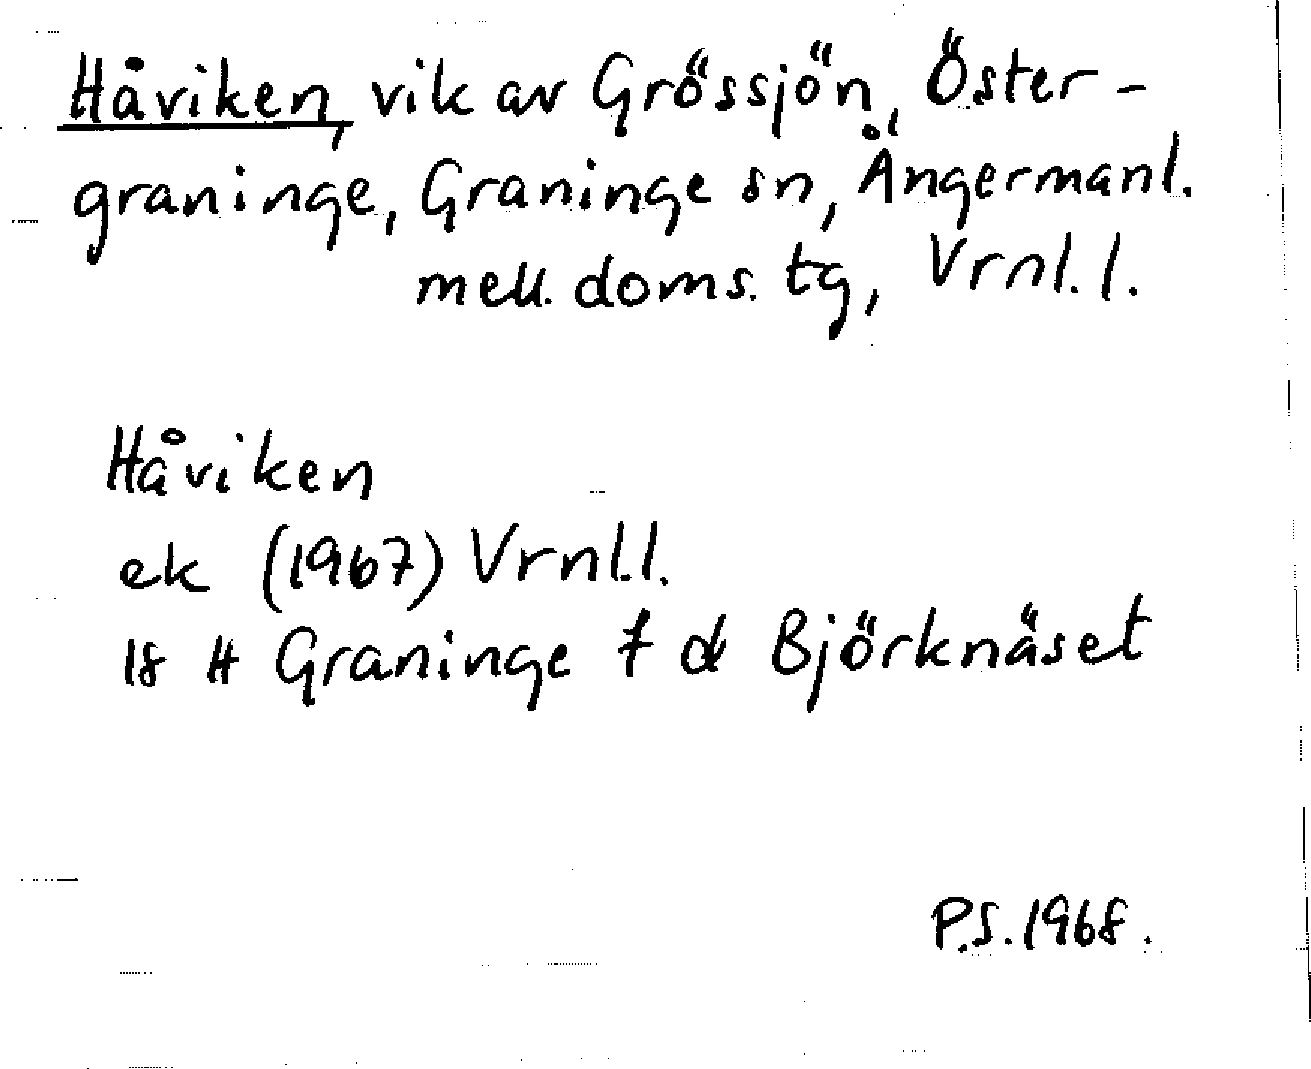 Håviken, vik av Grössjön, Öster-
graninge, Graninge sn, Ångermanl.
mell. doms. tg, Vrnl. l.
Håviken
ek (1967) Vrnl.l.
18 H Graninge f d Björknäset
P.S. 1968.